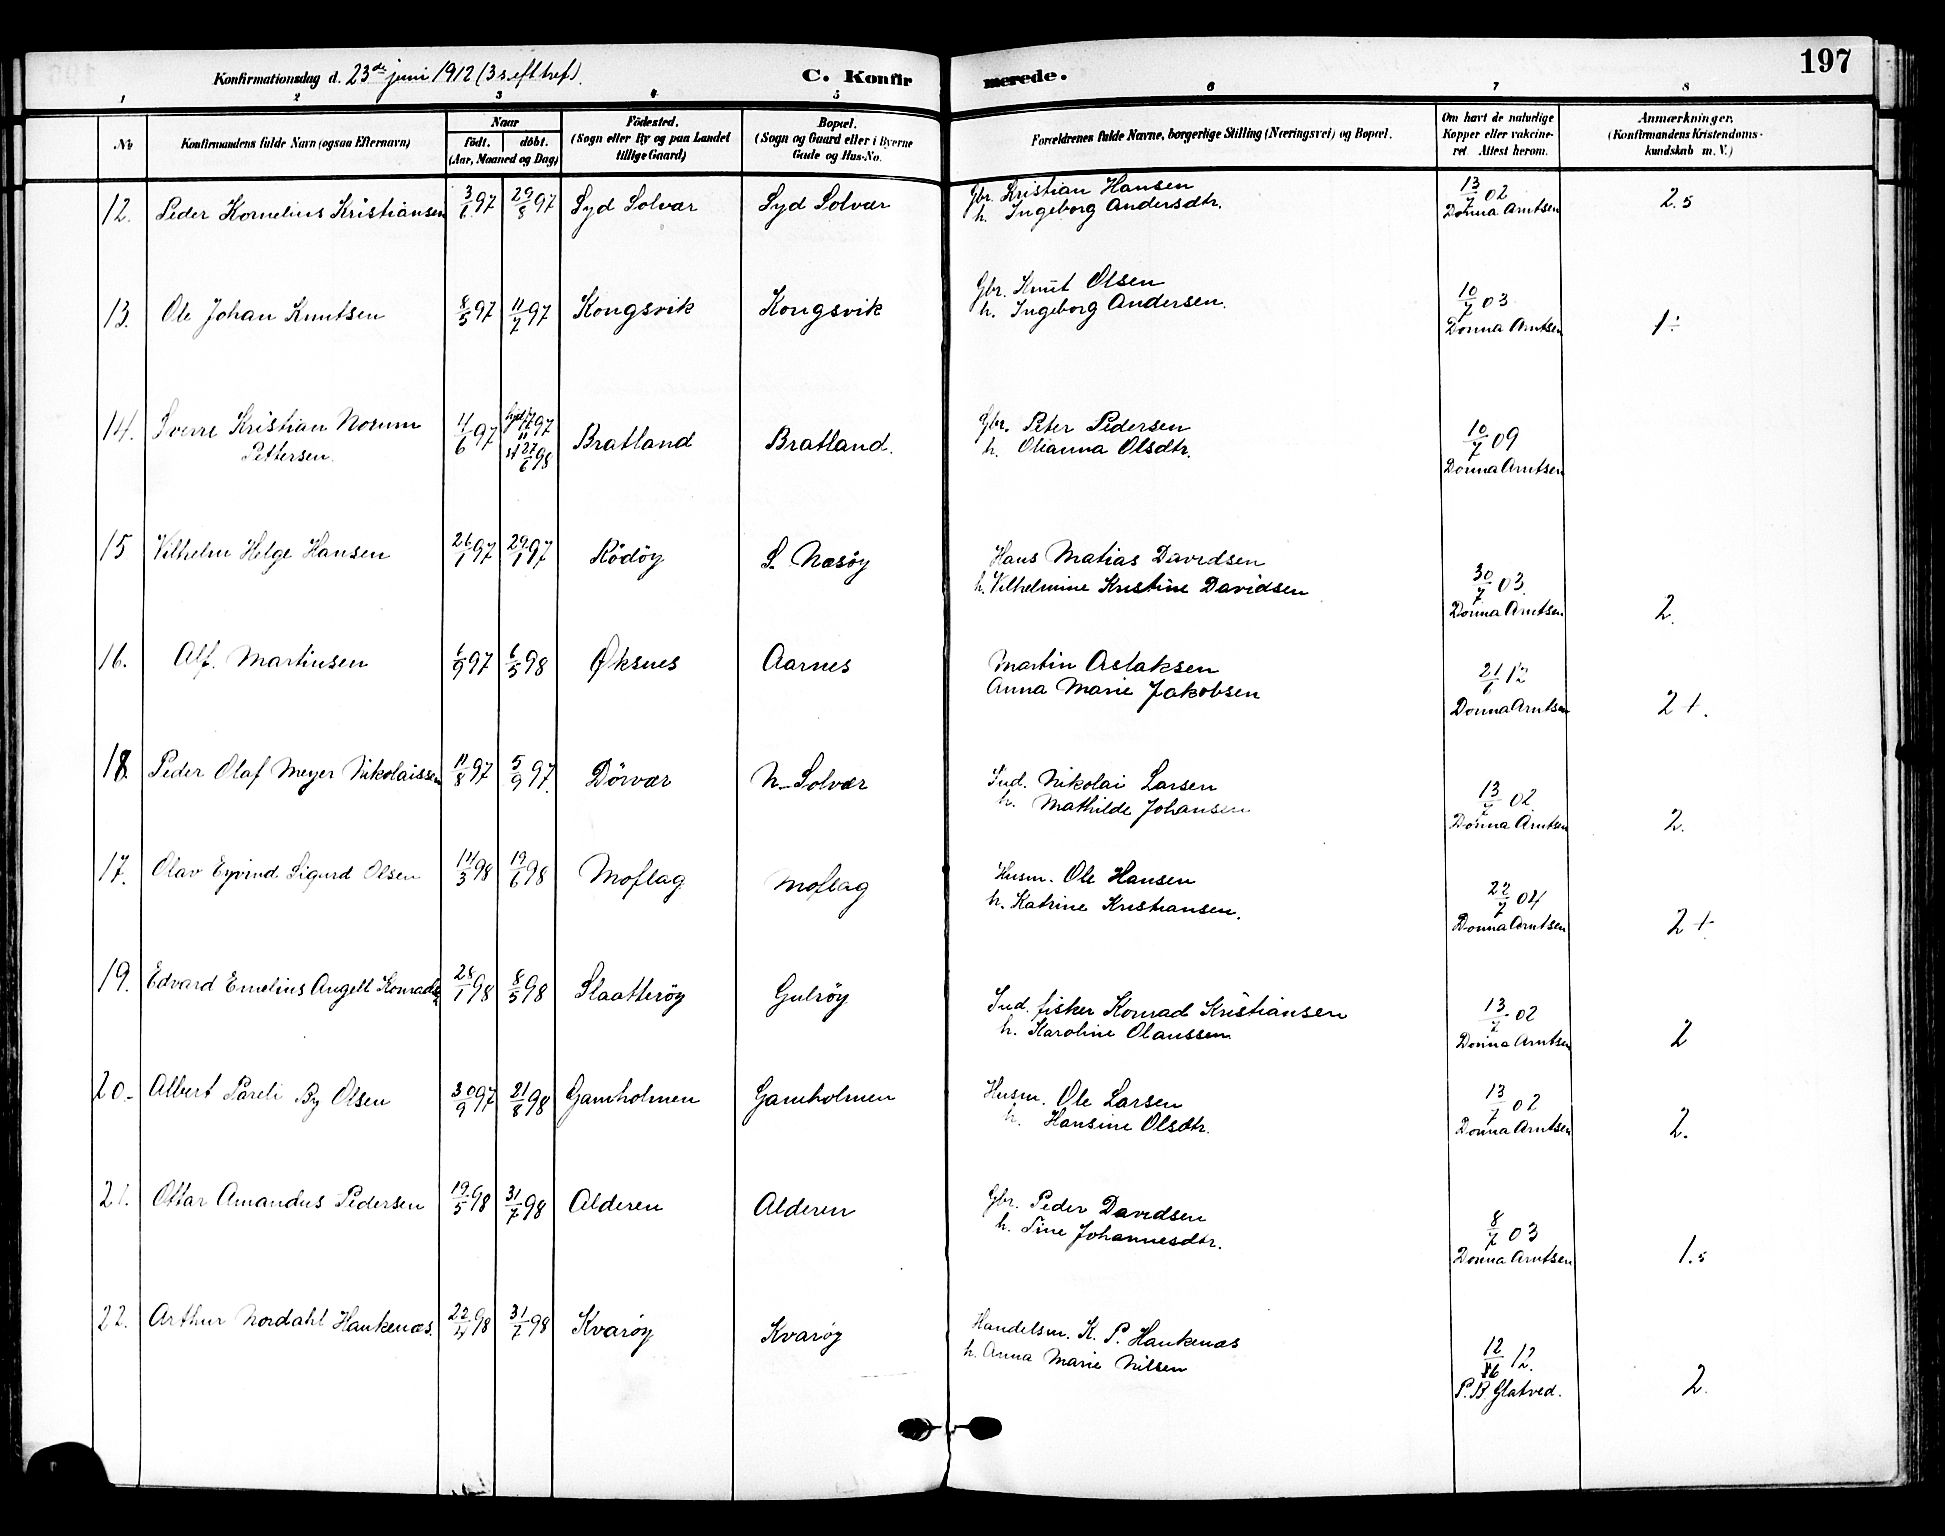 197
Konfirmationsdag d. 23de juni 1912 (3 s. eft. tref.)
C. Konfirmerede.
1 2 3 4 5 6 7 8
No
Konfirmandens fulde Navn (ogsaa Efternavn)
Naar
født. døbt.
(Aar, Maaned og Dag)
Fødested.
(Sogn eller By og paa Landet
tillige Gaard)
Bopæl.
(Sogn og Gaard eller i Byerne
Gade og Hus-No.
Forældrenes fulde Navne, borgerlige Stilling (Næringsvei) og Bopæl.
Om havt de naturlige
Kopper eller vakcine-
ret Attest herom.
Anmærkninger.
(Konfirmandens Kristendoms-
kundskab m. V.)
12. Peder Kornelius Kristiansen 3/6 97 29/8 97 Syd Solvær Syd Solvær Gbr. Kristian Hansen 13/7 02 2.5
h. Ingeborg Andersdtr. Donna Arntsen
13. Ole Johan Knutsen 8/5 97 11/7 97 Kongsvik Kongsvik Gbr. Knut Olsen 10/7 03 1÷
h. Ingeborg Andersen. Donna Arntsen
14. Sverre Kristian Norum 4/6 97 97 Bratland Bratland. Gbr. Peter Pedersen 10/7 09
Pettersen. st 27/6 98 h. Olianna Olsdtr. Donna Arntsen
15 Vilhelm Helge Hansen 26/1 97 29/1 97 Rödöy S. Næsöy Hans Matias Davidsen 30/7 03.
h. Vilhelmine Kristine Davidsen Donna Arntsen 2.
16. Alf. Martinsen 6/9 97 6/5 98 Øksnes Aarnes Martin Aslaksen 21/6 12
Anna Marie Jakobsen Donna Arntsen 2+.
18. Peder Olaf Meyer Nikolaissen 11/8 97 5/9 97. Dörvær N-Solvær Ind. Nikolai Larsen 13/7 02
h. Mathilde Johansen Donna Arntsen 2.
17. Olav Eyvind Sigurd Olsen 14/3 98 19/6 98 Moflag Moflag Husm. Ole Hansen 22/7 04
h. Katrine Kristiansen. Donna Arntsen 2+
19. Edvard Emelius Angell Konradsen 28/1 98 8/5 98 Slaatteröy Gulröy Ind. fisker Konrad Kristiansen 13/7 02
h. Karoline Olaussen Donna Arntsen 2
20- Albert Pareli By Olsen 30/9 97 21/8 98 Gamholmen Gamholmen Husm. Ole Larsen 13/7 02
h. Hansine Olsdtr. Donna Arntsen 2.
21. Ottar Amandus Pedersen 19/5 98 31/7 98 Alderen Alderen Gbr. Peder Davidsen 8/7 03
h. Sine Johannesdtr. Donna Arntsen 1.5
22. Arthur Nordahl Hankenæs. 22/4 98 31/7 98 Kvaröy Kvaröy Handelsm. K. P. Hankenæs 12/6 12.
h. Anna Marie Nilsen P. B. Glatved. 2.